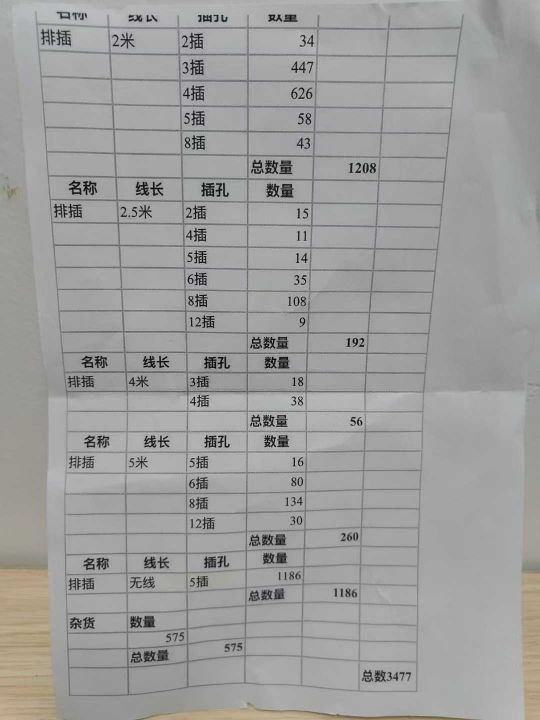 名称 线长 插孔 数量
排插 2米 2插 34
3插 447
4插 626
5插 58
8插 43
总数量 1208
名称 线长 插孔 数量
排插 2.5米 2插 15
4插 11
5插 14
6插 35
8插 108
12插 9
总数量 192
名称 线长 插孔 数量
排插 4米 3插 18
4插 38
总数量 56
名称 线长 插孔 数量
排插 5米 5插 16
6插 80
8插 134
12插 30
总数量 260
名称 线长 插孔 数量
排插 无线 5插 1186
总数量 1186
杂货 数量
575
总数量 575
总数3477